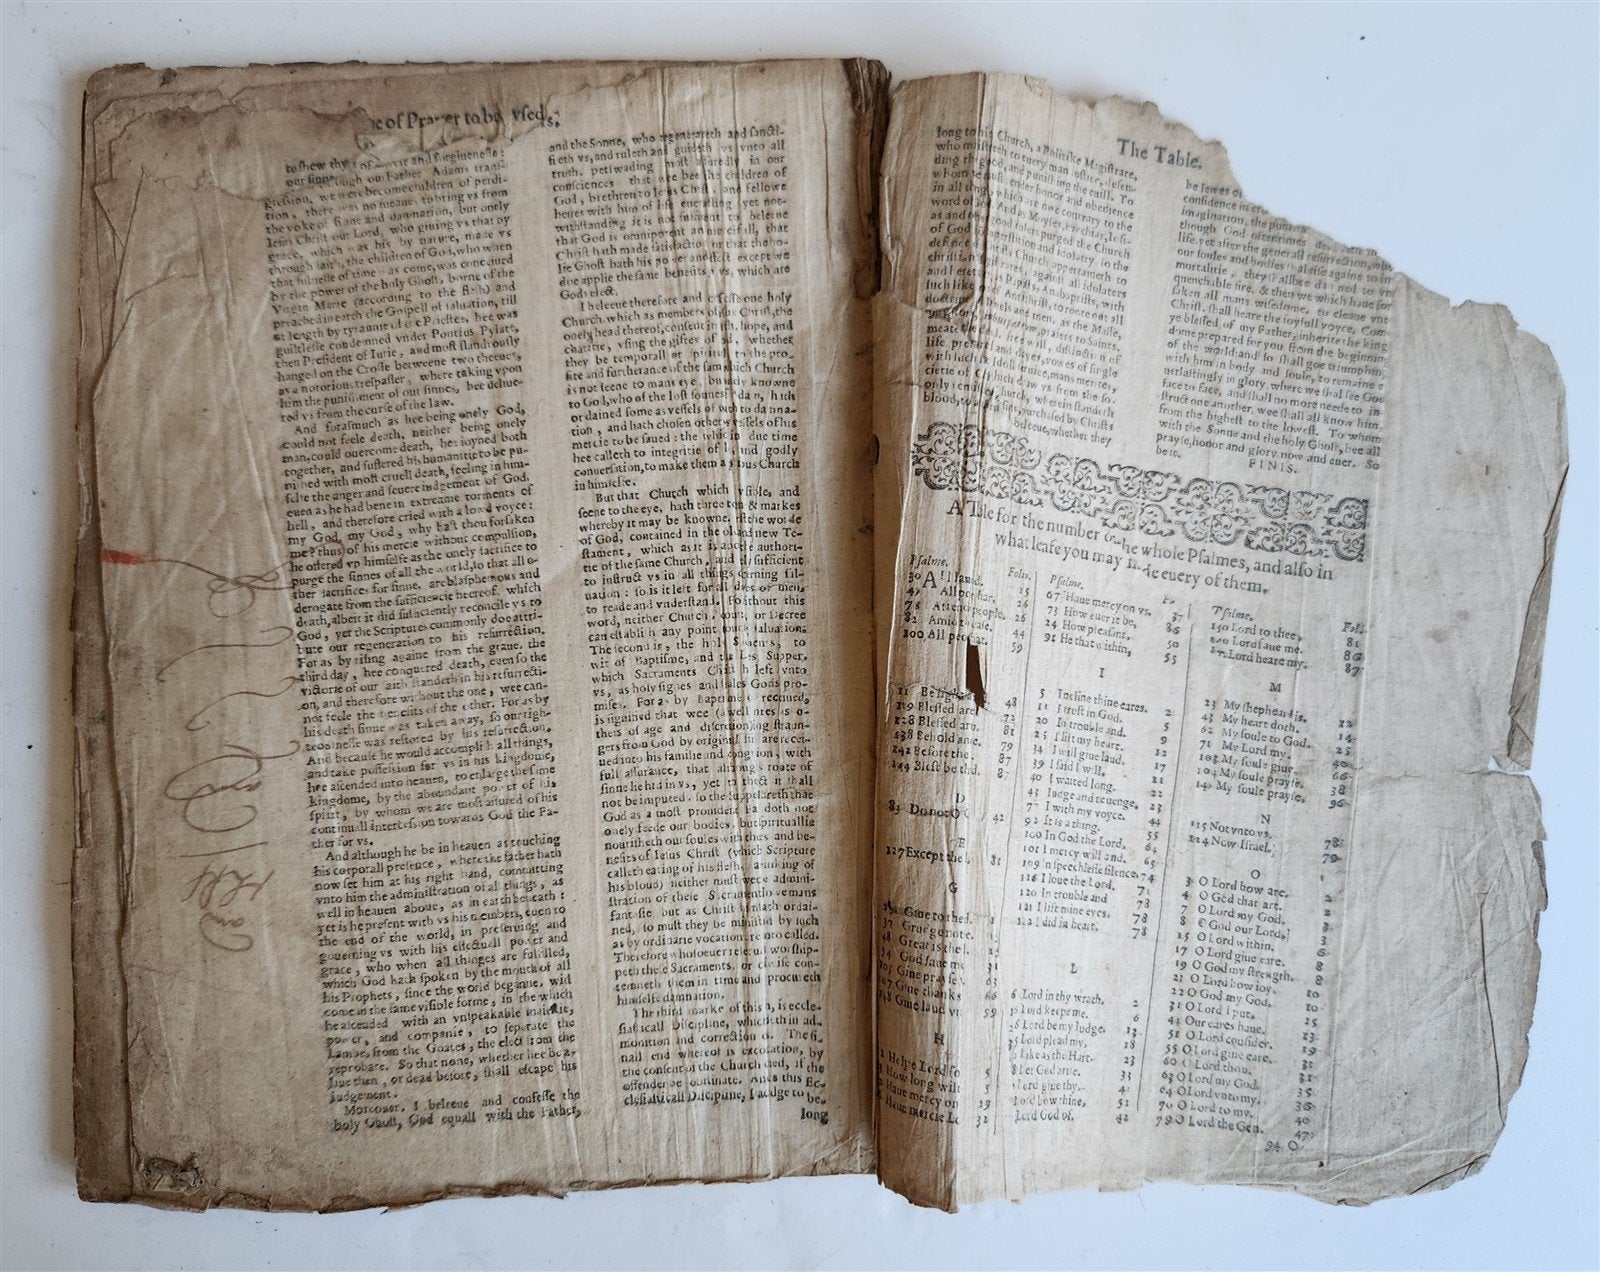 e of Prayer to be vsed.
to shew thy of mercie and forgiuenesse:
our sinne through our Father Adams trans-
gression, we were become children of perdi-
tion, there was no meanes to bring vs from
the yoke of sinne and damnation, but onely
Iesus Christ our Lord, who giuing vs that by
grace, which was his by nature, made vs
through faith, the children of God, who when
that fulnesse of time was come, was conceiued
by the power of the holy Ghost, borne of the
Virgin Marie (according to the flesh) and
preached in earth the Gospell of saluation, till
at length by tyrannie of the Priestes, hee was
guiltlesse condemned vnder Pontius Pylate,
then President of Iurie, and most slanderously
hanged on the Crosse betweene two theeues,
as a notorious trespasser, where taking vpon
him the punishment of our sinnes, hee deliue-
red vs from the curse of the law.
And forasmuch as hee being onely God,
could not feele death, neither being onely
man, could ouercome death, hee ioyned both
together, and suffered his humanitie to be pu-
nished with most cruell death, feeling in him-
selfe the anger and seuere iudgement of God,
euen as he had bene in extreame torments of
hell, and therefore cried with a lowd voyce:
my God, my God, why hast thou forsaken
me? thus of his mercie without compulsion,
he offered vp himselfe as the onely sacrifice to
purge the sinnes of all the world, so that all o-
ther sacrifices for sinne, are blasphemous and
derogate from the sufficiencie hereof, which
death, albeit it did sufficiently reconcile vs to
God, yet the Scriptures commonly doe attri-
bute our regeneration to his resurrection.
For as by rising againe from the graue, the
third day, hee conquered death, euen so the
victorie of our faith standeth in his resurrecti-
on, and therefore without the one, wee can-
not feele the benefits of the other. For as by
his death sinne was taken away, so our righ-
teousnesse was restored by his resurrection.
And because he would accomplish all things,
and take possession for vs in his kingdome,
hee ascended into heauen, to enlarge the same
kingdome, by the aboundant power of his
spirit, by whom we are most assured of his
continuall intercession towards God the Fa-
ther for vs.
And although he be in heauen as touching
his corporall presence, where the father hath
now set him at his right hand, committing
vnto him the administration of all things, as
well in heauen aboue, as in earth beneath:
yet is he present with vs his members, euen to
the end of the world, in preseruing and
gouerning vs with his effectuall power and
grace, who when all thinges are fulfilled,
which God hath spoken by the mouth of all
his Prophets, since the world beginne, will
come in the same visible forme, in the which
he ascended with an vnspeakable maiestie,
power, and companie, to seperate the
Lambes from the Goates, the elect from the
reprobate. So that none, whether hee be a-
liue then, or dead before, shall escape his
iudgement.
Moreouer, I beleeue and confesse the
holy Ghost, God equall with the Father,
and the Sonne, who regenerateth and sancti-
fieth vs, and ruleth and guideth vs vnto all
truth, perswading most assuredly in our
consciences that wee bee the children of
God, brethren to Iesus Christ, and fellowe
heires with him of life euerlasting yet not-
withstanding it is not sufficient to beleeue
that God is omnipotent and mercifull, that
Christ hath made satisfaction or that the ho-
lie Ghost hath his power and effect except we
doe applie the same benefits vs, which are
Gods elect.
I beleeue therefore and confesse one holy
Church, which as members of Iesus Christ, the
onely head thereof, consent in faith, hope, and
charitie, vsing the giftes of God, whether
they be temporall or spirituall to the pro-
fite and furtherance of the same which Church
is not seene to mans eye, but onely knowne
to God, who of the lost sonnes of Adam, hath
ordained some as vessels of wrath to damna-
tion, and hath chosen others vessels of his
mercie to be saued: the which in due time
hee calleth to integritie of life and godly
conuersation, to make them a glorious Church
in himselfe.
But that Church which visible, and
seene to the eye, hath three tokens & markes
whereby it may be knowne, the worde
of God, contained in the old and new Te-
stament, which as it is aboue the authori-
tie of the same Church, and sufficient
to instruct vs in all things concerning sal-
uation: so is it left for all degrees of men,
to reade and vnderstand. For without this
word, neither Church or Decree
can establish any point touching saluation.
The second is, the holy Sacraments, to
wit of Baptisme, and the Lords Supper,
which Sacraments Christ hath left vnto
vs, as holy signes and seales of Gods pro-
mises. For as by Baptisme once receiued,
is signified that wee (as well infants as o-
thers of age and discretion) being straun-
gers from God by originall sinne are recei-
ued into his familie and congregation, with
full assurance, that although this roote of
sinne lie hid in vs, yet to the elect it shall
not be imputed: so the Supper declareth that
God as a most prouident Father doth not
onely feede our bodies, but spirituallie
nourisheth our soules with the graces and be-
nefits of Iesus Christ (which Scripture
calleth eating of his flesh and drinking of
his bloud) neither must wee in the admini-
stration of these Sacraments follow mans
fantasie, but as Christ himselfe hath ordai-
ned, so must they be ministred by such
as by ordinarie vocation are thereunto called.
Therefore whosoeuer reserueth or worship-
peth these Sacraments, or contrariwise con-
temneth them in time and place, procureth
himselfe damnation.
The third marke of this Church, is eccle-
siasticall Discipline, which standeth in ad-
monition and correction of faults. The fi-
nall end whereof is excommunication, by
the consent of the Church determined, if the
offender be obstinate. And besides this Ec-
clesiasticall Discipline, I acknowledge to be-
long
The Table.
long to his Church, a Politike Magistrate,
who ministreth to euery man iustice, defen-
ding the good, and punishing the euill. To
whom we must render honor and obedience
in all things, which are not contrary to the
word of God. And as Moyses, Ezechias, Iosi-
as and other good rulers purged the Church
of God from superstition and idolatry, so the
defence of Christs Church appertaineth to
christian Magistrates, against all idolaters
and heretikes, as Papists, Anabaptists, with
such like of Antichrist, to roote out all
doctrine of Deuils and men, as the Masse,
Purgatory, Limbus patrum, praiers to Saints,
meate the dead, free will, distinction of
life, presence and dayes, vowes of single
with such Idoll seruice, mans merites,
cietie of which draw vs from the so-
only remission Church, wherein standeth
blood, to of sins, purchased by Christs
beleeue, whether they
be Iewes or
confidence in cre
imagination, the punish
though God oftentimes
life, yet after the generall resurrection, whe
our soules and bodies shall rise againe to im-
mortalitie, they shall bee damned to vn-
quenchable fire, & then we which haue for-
saken all mans wisedome, to cleaue vnto
Christ, shall heare the ioyfull voyce, Come
ye blessed of my Father, inherite the king-
dome prepared for you from the beginning
of the world and so shall goe triumphing
with him in body and soule, to remaine e-
uerlastingly in glory, where we shal see God
face to face, and shall no more neede to in-
struct one another, wee shall all know him,
from the highest to the lowest. To whom
with the Sonne and the holy Ghost, bee all
prayse, honor and glory now and euer. So
be it.
FINIS.
A Table for the number of the whole Psalmes, and also in
what leafe you may finde euery of them.
Psalme. Folio.
30 All laud. 15
49 All people, 26
78 Attend people, 26
82 Amids 44
100 All people. 59
48
119 Blessed are 72
128 Blessed art. 81
138 Behold and. 79
142 Before the. 87
144 Blest be the 87
D
83 Do not O 42
E
127 Except the 81
G
Giue to the
37 Grudge not.
48 Great is the 25
54 God saue me 31
105 Giue prayse 63
107 Giue thanks 66
148 Giue laud vn 59
H
Helpe Lord 5
How long wilt 5
Haue mercy on 29
Haue mercie Lo 32
Psalme. Fo
67 Haue mercy on vs. 37
73 How euer it be, 86
24 How pleasant. 50
91 He that within, 55
I
5 Incline thine eares. 2
11 I trust in God. 5
20 In trouble and. 9
25 I lift my heart. 12
34 I will giue laud. 17
39 I said I will. 21
40 I waited long. 22
43 Iudge and reuenge. 23
77 I with my voyce. 44
92 It is a thing. 55
100 In God the Lord. 64
101 I mercy will and. 65
109 In speechlesse silence. 74
116 I loue the Lord. 71
120 In trouble and 78
121 I lift mine eyes. 78
122 I did in heart. 78
L
6 Lord in thy wrath. 2
30 Lord keepe me. 6
26 Lord be my Iudge. 13
35 Lord plead my, 18
Like as the Hart. 23
Let God arise. 33
Lord giue thy. 41
Lord bow thine, 51
Lord God of. 42
Psalme. Fol.
130 Lord to thee, 81
140 Lord saue me. 86
Lord heare my. 87
M
23 My shepheard is. 12
45 My heart doth. 14
62 My soule to God. 25
71 My Lord my. 40
103 My soule giue. 66
104 My soule prayse. 38
146 My soule prayse. 96
N
115 Not vnto vs. 78
124 Now Israel, 79
O
3 O Lord how are. 2
4 O God that art. 2
7 O Lord my God. 3
8 O God our Lord. 3
15 O Lord within. 6
17 O Lord giue eare. 8
19 O God my strength. 8
21 O Lord how ioy. 10
22 O God my God. 10
31 O Lord I put. 25
44 Our eares haue. 23
51 O Lord consider. 29
55 O Lord giue eare. 31
60 O Lord thou. 31
63 O Lord my God. 35
64 O Lord vnto my. 36
70 O Lord to me. 40
79 O Lord the Gen. 47
94 O